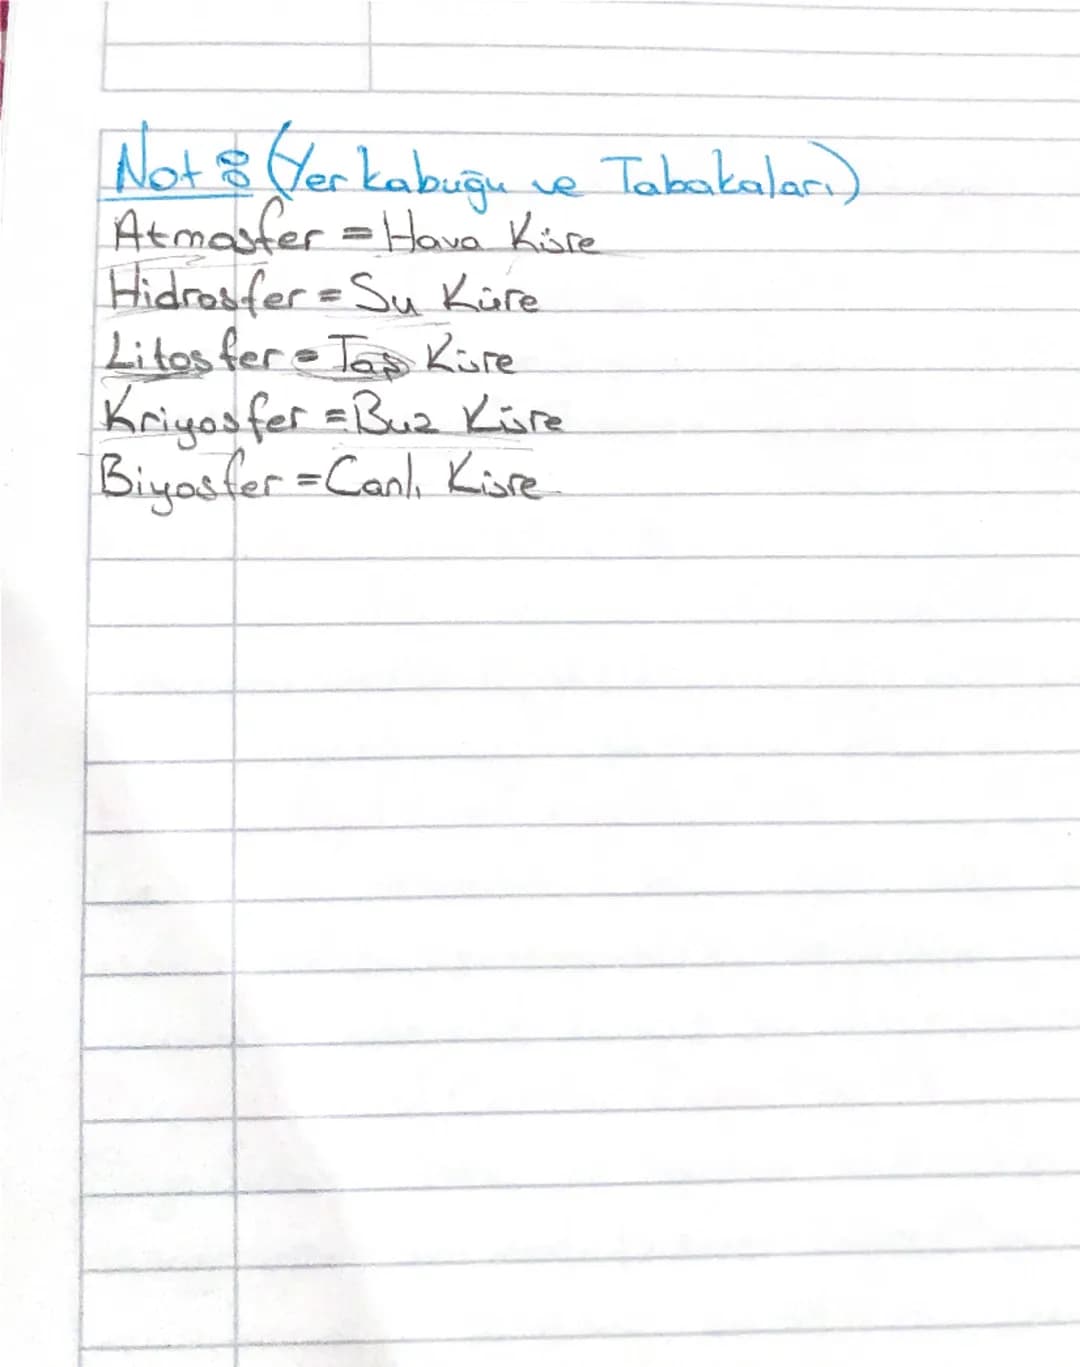 Not: (Yer kabuğu ve Tabakaları)
Atmosfer = Hava Küre
Hidrosfer = Su Küre
Litosfer = Taş Küre
Kriyosfer = Buz Küre
Biyosfer = Canlı Küre